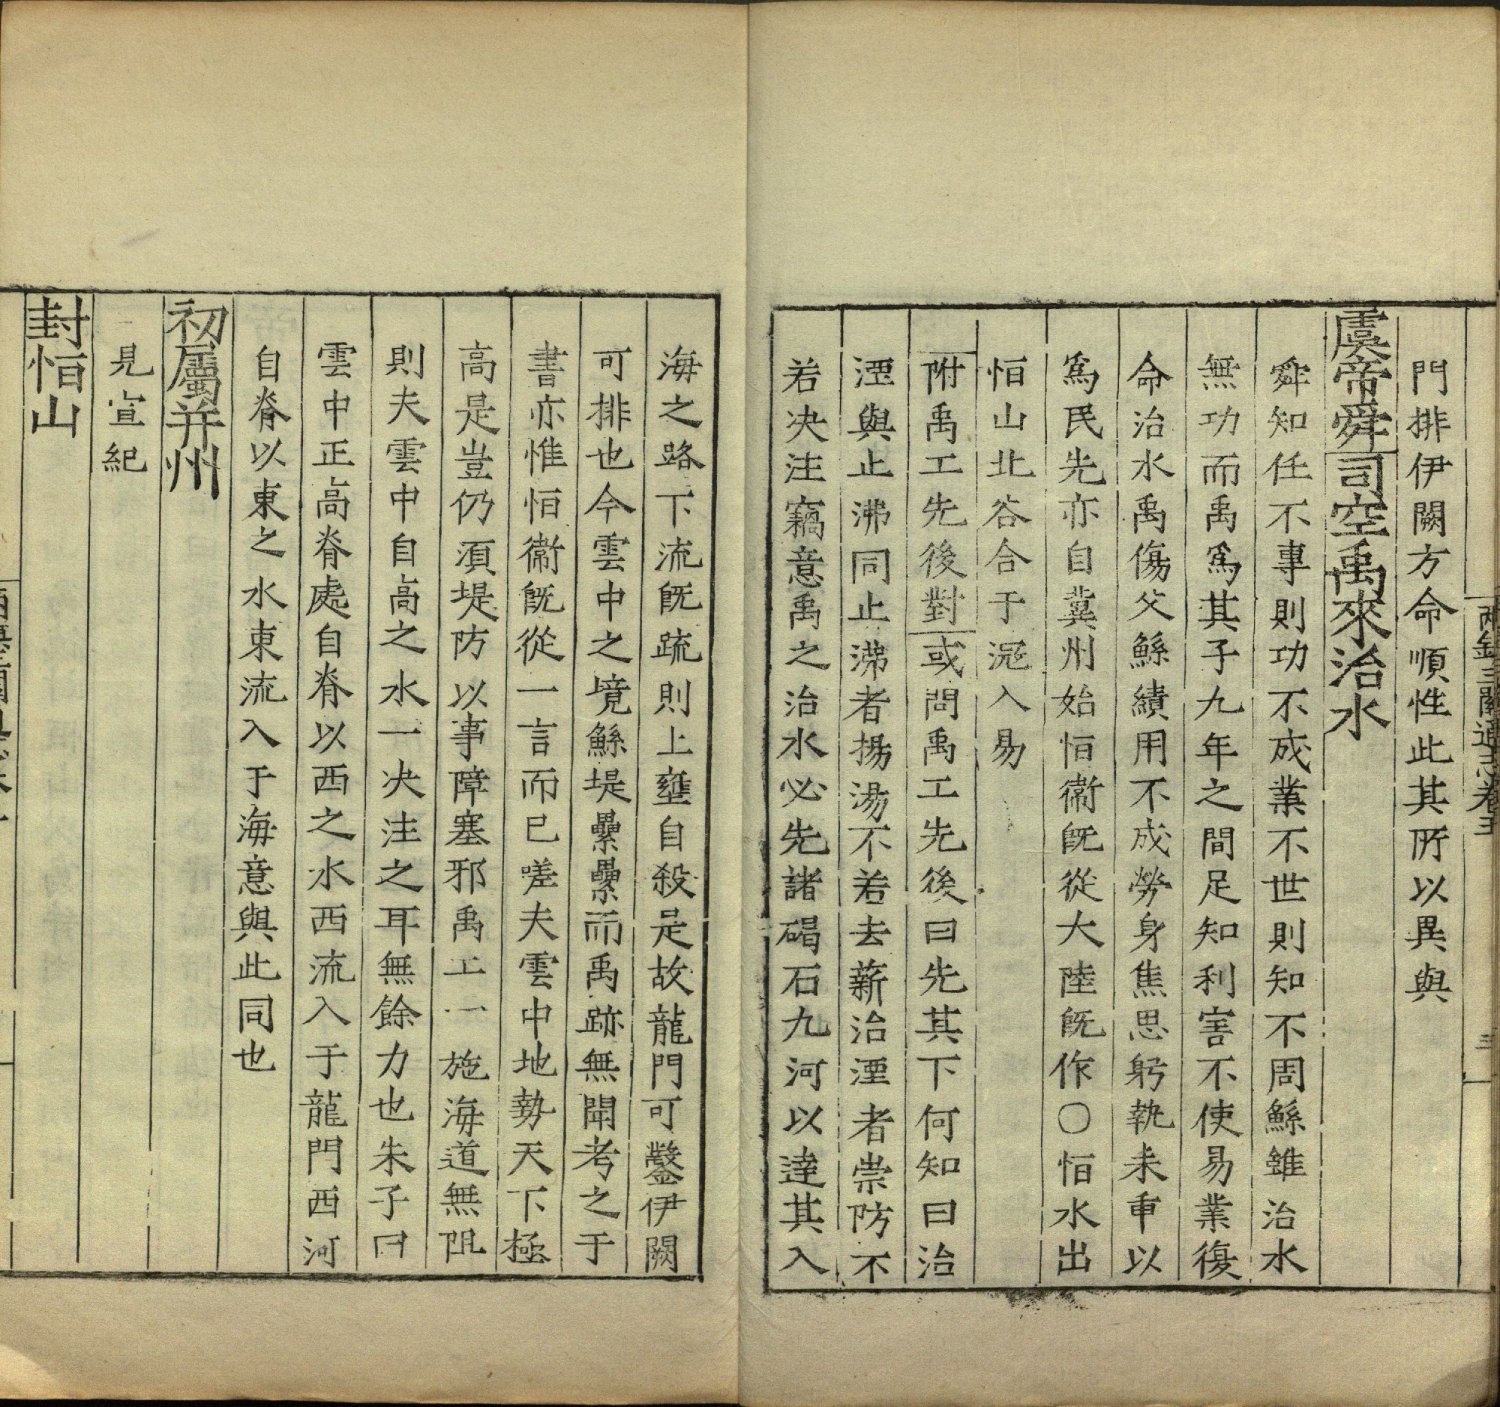 兩鎮三關通志卷三
三
門排伊闕方命順性此其所以異與
虞帝舜司空禹來治水
舜知任不專則功不成業不世則知不周鯀雖治水
無功而禹爲其子九年之間足知利害不使易業復
命治水禹傷父鯀績用不成勞身焦思躬執耒臿以
爲民先亦自冀州始恒衛旣從大陸旣作〇恒水出
恒山北谷合于滱入易
附禹工先後對或問禹工先後曰先其下何知曰治
湮與止沸同止沸者揚湯不若去薪治湮者崇防不
若决注竊意禹之治水必先諸碣石九河以達其入
海之路下流旣疏則上壅自殺是故龍門可鑿伊闕
可排也今雲中之境鯀堤纍纍而禹跡無聞考之于
書亦惟恒衛旣從一言而已嗟夫雲中地勢天下極
高是豈仍湏堤防以事障塞邪禹工一施海道無阻
則夫雲中自高之水一决注之耳無餘力也朱子曰
雲中正高脊處自脊以西之水西流入于龍門西河
自脊以東之水東流入于海意與此同也
初屬并州
見宣紀
封恒山